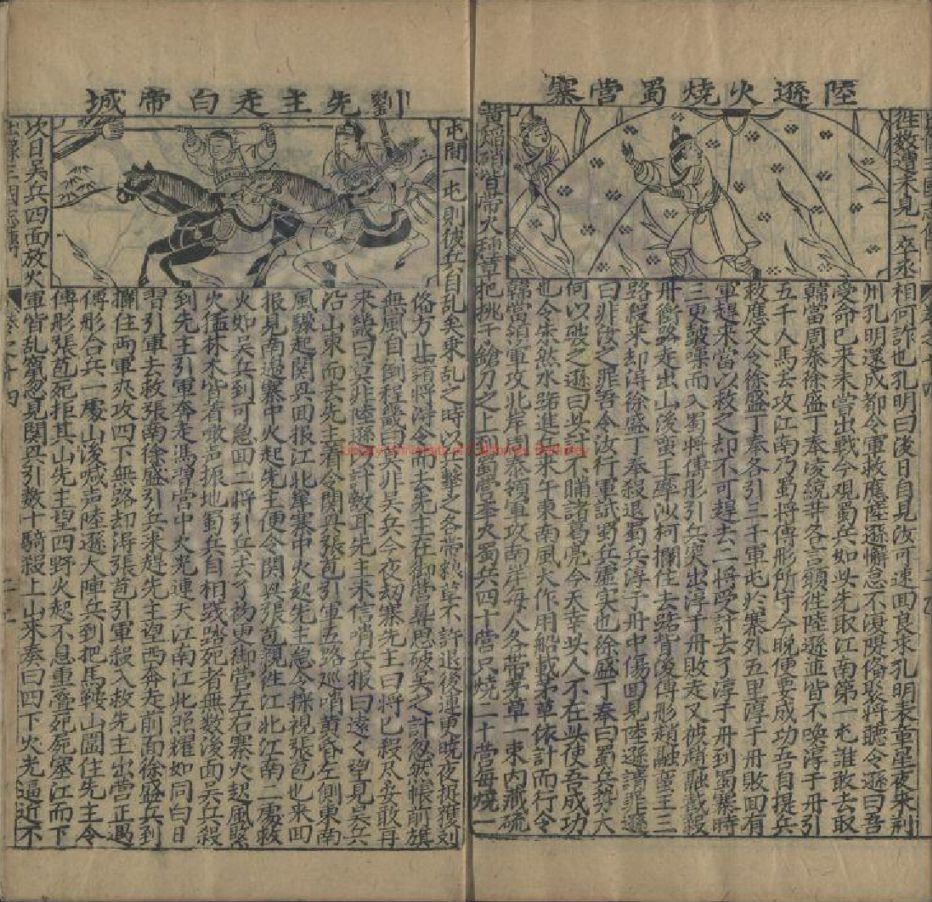 陸遜火燒蜀營寨
徃數遭未見一卒丞相何詐也孔明曰後日自見汝可速回良求孔明表章星夜來荆
州孔明還成都令軍救應陸遜懈怠不復隄俻聚將聽令遜曰吾
受命已來未嘗出戰今观蜀兵如此先取江南第一屯誰敢去取
韓當周泰徐盛丁奉凌統并各言願徃陸遜並皆不喚淳于丹引
五千人馬去攻江南乃蜀將傅彤所守今晚便要成功吾自提兵
救應又令徐盛丁奉各引三千軍屯於寨外五里淳于丹敗回有
軍趕來當以救之却不可趕去二將受計去了淳于丹到蜀寨時
三更皷噪而入蜀將傅彤引兵突出淳于丹敗走又被趙融截殺
丹衝路走出山後蛮王率沙柯攔住去路背後傅彤趙融蛮王三
路殺來却淂徐盛丁奉殺退蜀兵淳于丹中傷回見陸遜請罪遜
曰非汝之罪吾令汝行軍試蜀兵虛实也徐盛丁奉曰蜀兵势大
何以破之遜曰此計不瞞諸葛亮今天幸此人不在此使吾成功
也令朱然水路進兵來午東南風大作用船載茅草依計而行令
韓當領軍攻北岸周泰領軍攻南岸每人各帶茅草一束内藏硫
黄焔硝皆帶火種草把挑于鎗刀之上到蜀營大蜀兵四十營只燒二十營每燒一
劉先主走白帝城
屯間一屯則彼兵自乱矣乘乱之時以兵擊之各帶粮草不許退後連更曉夜抵攩列
俻方止諸將淂令而去先主在御營尋思破吳之計忽然帳前旗
無風自倒程畿曰莫非吳兵今夜劫寨先主曰將已殺尽安敢再
來畿曰莫非陸遜以計敵耳先主未信哨兵报曰遠々望見吳兵
沿山東而去先主着令関興張苞引軍五路巡哨黄昏左側東南
風驟起関興回报江北岸寨中火起先主急令探視張苞也來回
报見南邊寨中火起先主便令関興張苞視徃江北江南二處救
火如吳兵到可急回二將引兵去了初更御營左右寨火起風緊
火猛林木皆着喊声振地蜀兵自相踐踏死者無數後面吳兵殺
到先主引軍奔走馮習營中火光連天江南江北照耀如同白日
習引軍去救張南徐盛引兵來趕先主望西奔走前面徐盛兵到
攔住兩軍夾攻四下無路却淂張苞引軍殺入救先主出營正遇
傅彤合兵一處山後喊声陸遜大陣兵到把馬鞍山圍住先主令
傅彤張苞死拒其山先主望四野火起不息重叠死屍塞江而下
次日吳兵四面放火軍皆乱竄忽見関興引數十騎殺上山來奏曰四下火光逼近不